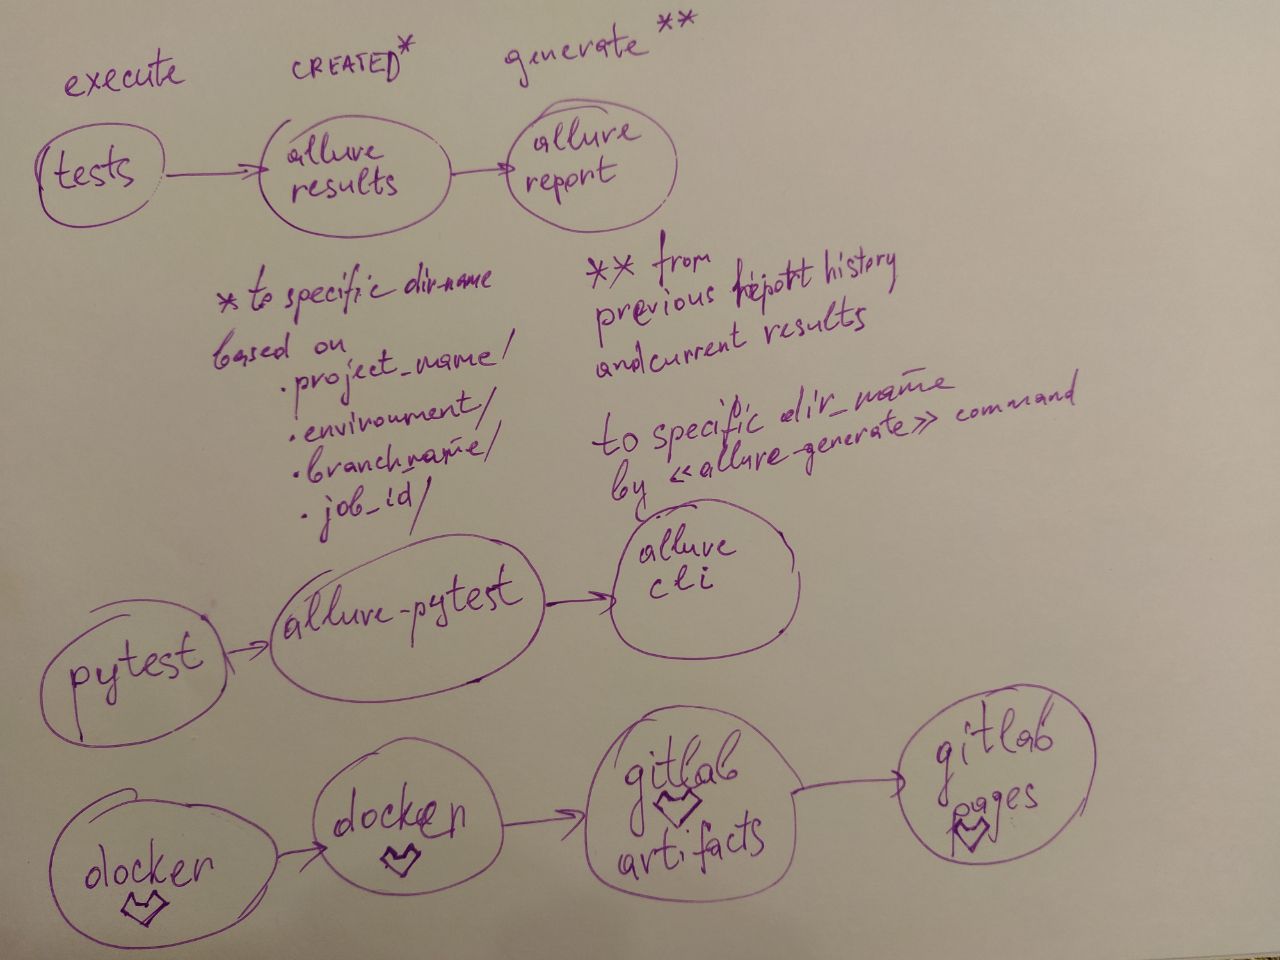 execute
CREATED*
generate **
tests
allure
results
allure
report
* to specific dir-name
based on
· project_name/
· environment/
· branch_name/
· job_id/
** from
previous report history
and current results
to specific dir_name
by «allure-generate» command
pytest
allure-pytest
allure
cli
docker
docker
gitlab
artifacts
gitlab
pages